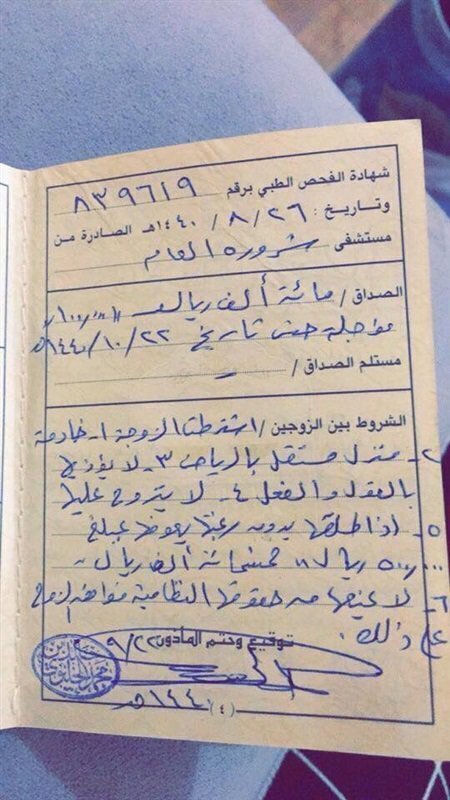 شهادة الفحص الطبي برقم ٨٣٩٦١٩
وتاريخ : ٢٦ / ٨ / ١٤٤٠هـ الصادرة من
مستشفى شروره العام
الصداق / مائة ألف ريال
مؤجلة حتى تاريخ ٢٢ / ١٠ / ١٤٤٠هـ
مستلم الصداق /
الشروط بين الزوجين / اشترطت الزوجة ١- خادمة
٢- منزل مستقل بالرياض ٣- لا يؤذيها
بالقول والفعل ٤- لا يتزوج عليها
٥- إذا طلقها بدون رغبتها يعوضها بمبلغ
٥٠٠,٠٠٠ ريال خمسمائة ألف ريال
٦- لا يمنعها من حقوقها النظامية فوافق الزوج
على ذلك .
توقيع وختم المأذون ٩/٢٢
١٤٤٠هـ
(٤)